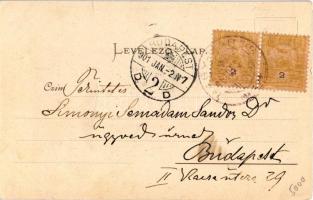 LEVELEZŐ LAP.
BUDAPEST
901 JAN. 2
2
2
Czim Tekintetes
Simonyi Semadam Sandor Dr
ügyvéd urnak
Budapest
II Vaczi utcza 29
5000